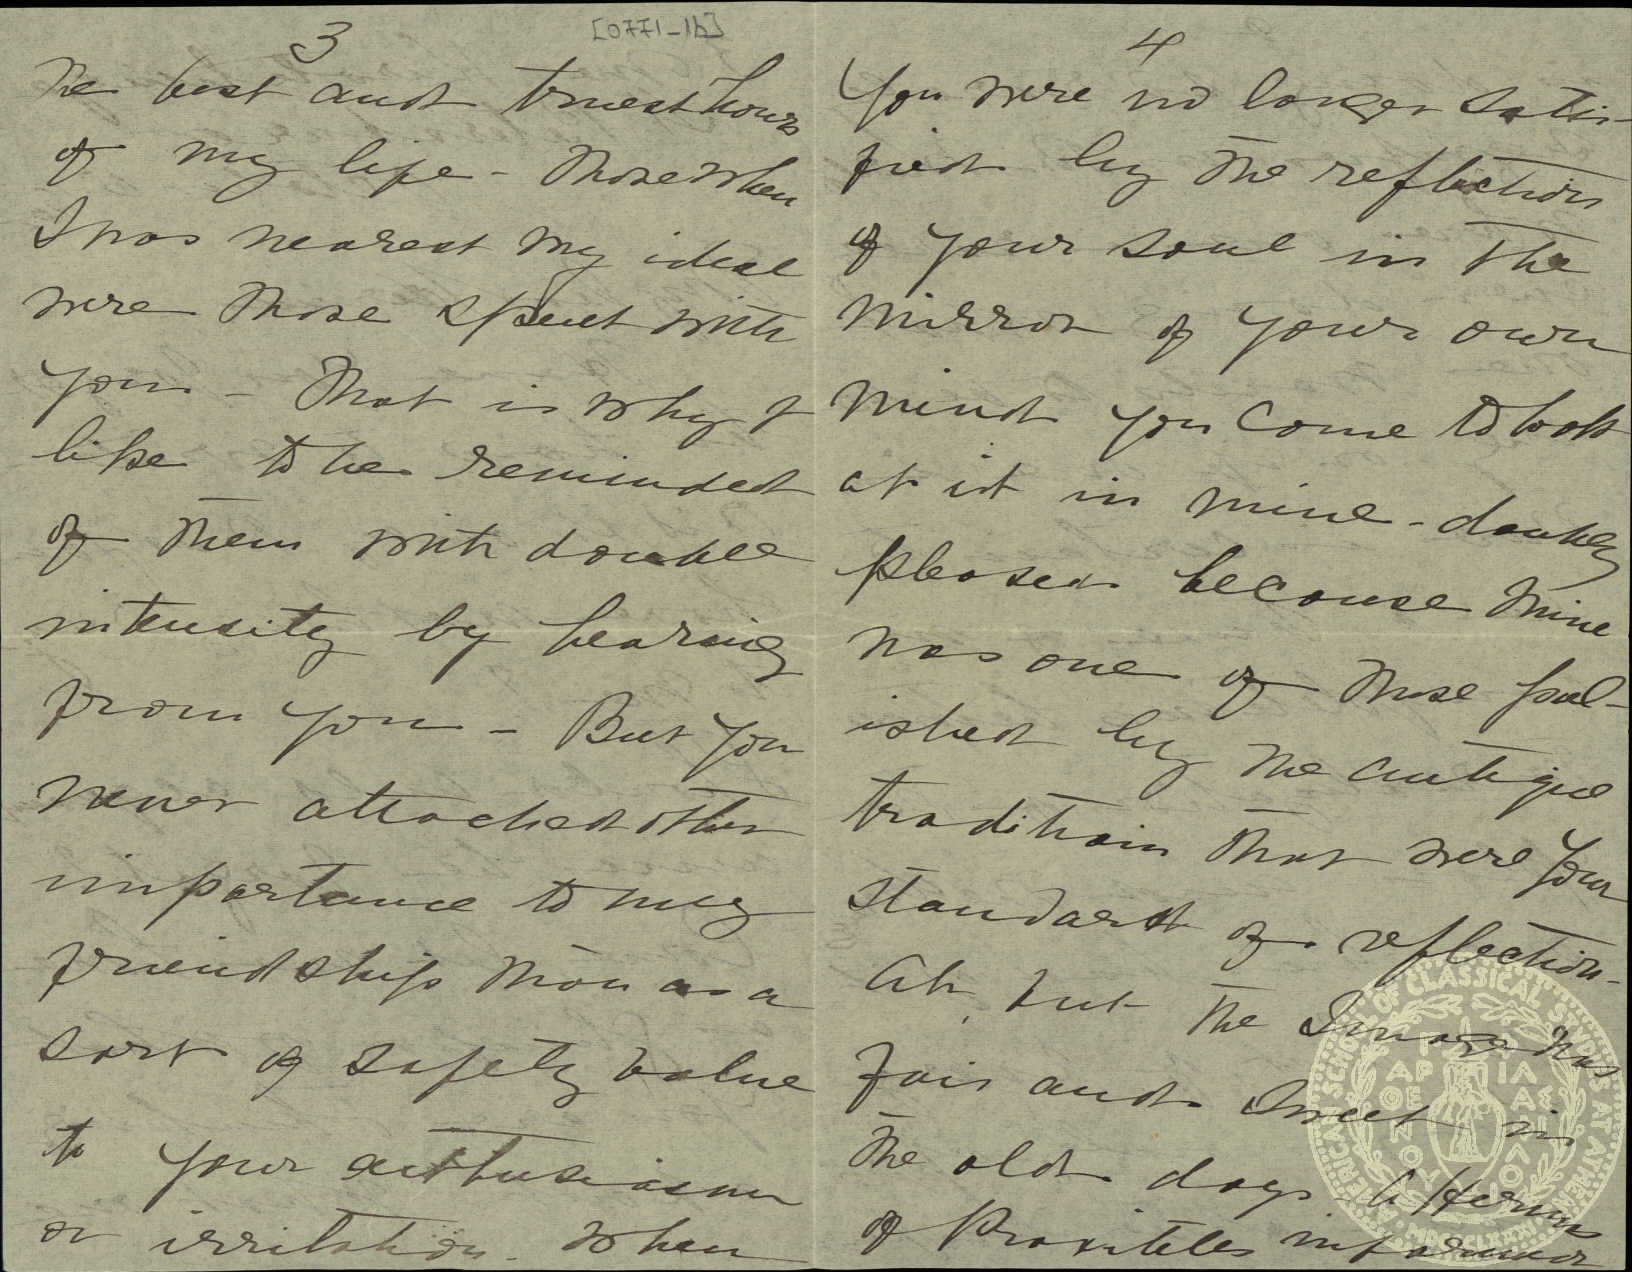 3
The best and truest hours
of my life - Those when
I was nearest my ideal
were those spent with
you - That is why I
like to be reminded
of them with double
intensity by hearing
from you - But you
never attached other
importance to my
friendship than as a
sort of safety valve
to your enthusiasm
or irritation. When
[0771-1b]
4
You were no longer satis-
fied by the reflection
of your soul in the
mirror of your own
mind you come to look
at it in mine - doubly
pleased because mine
was one of those pol-
ished by the antique
tradition that were your
standard of reflection -
Ah, but the Image was
fair and sweet in
the old days. A Hermes
of Praxiteles in
AMERICAN SCHOOL OF CLASSICAL STUDIES AT ATHENS
ΠΑΡΘΕΝΟΥ ΦΙΛΑΣ ΦΙΛΟΙ
MDCCCLXXXI